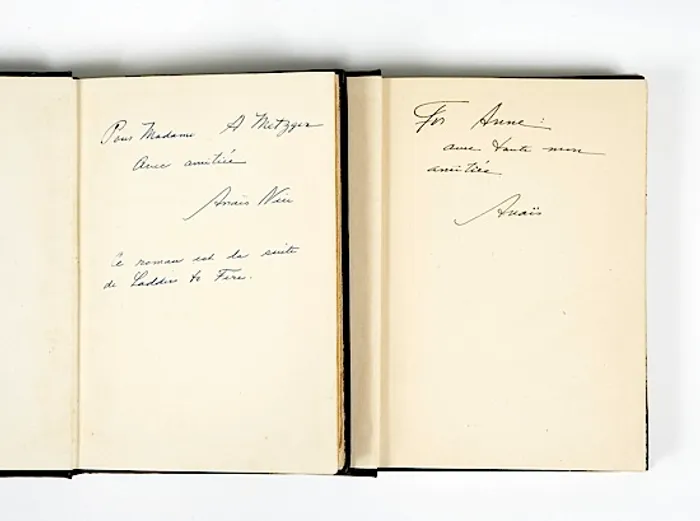 Pour Madame A Metzger
Avec amitiée
Anaïs Nin
Ce roman est la suite
de Ladders to Fire.
For Anne:
avec toute mon
amitiée
Anaïs